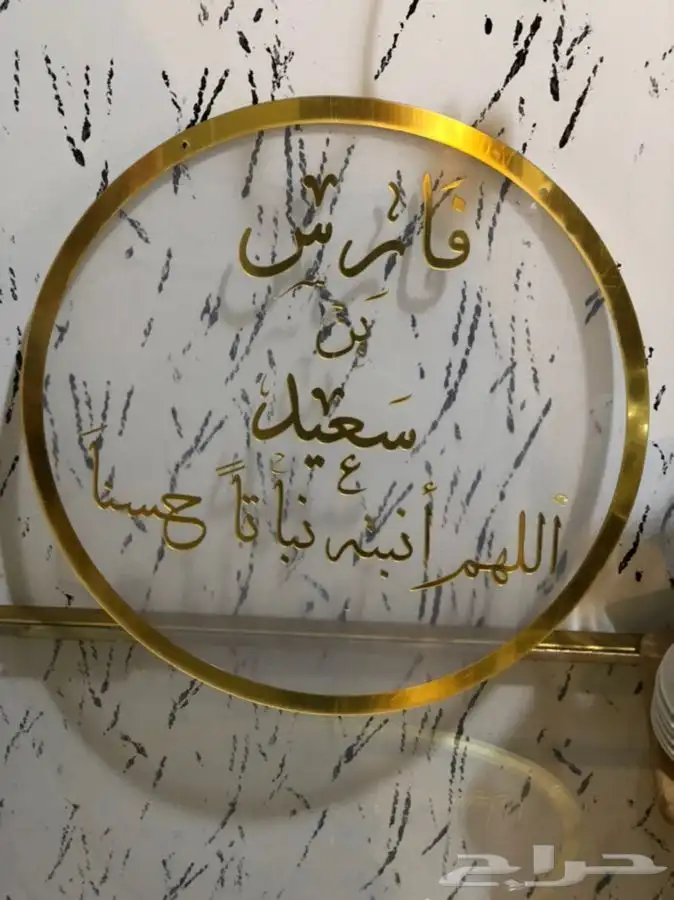 فَارس
بن
سَعيد
اللهم أنبته نباتاً حسناً
حراج